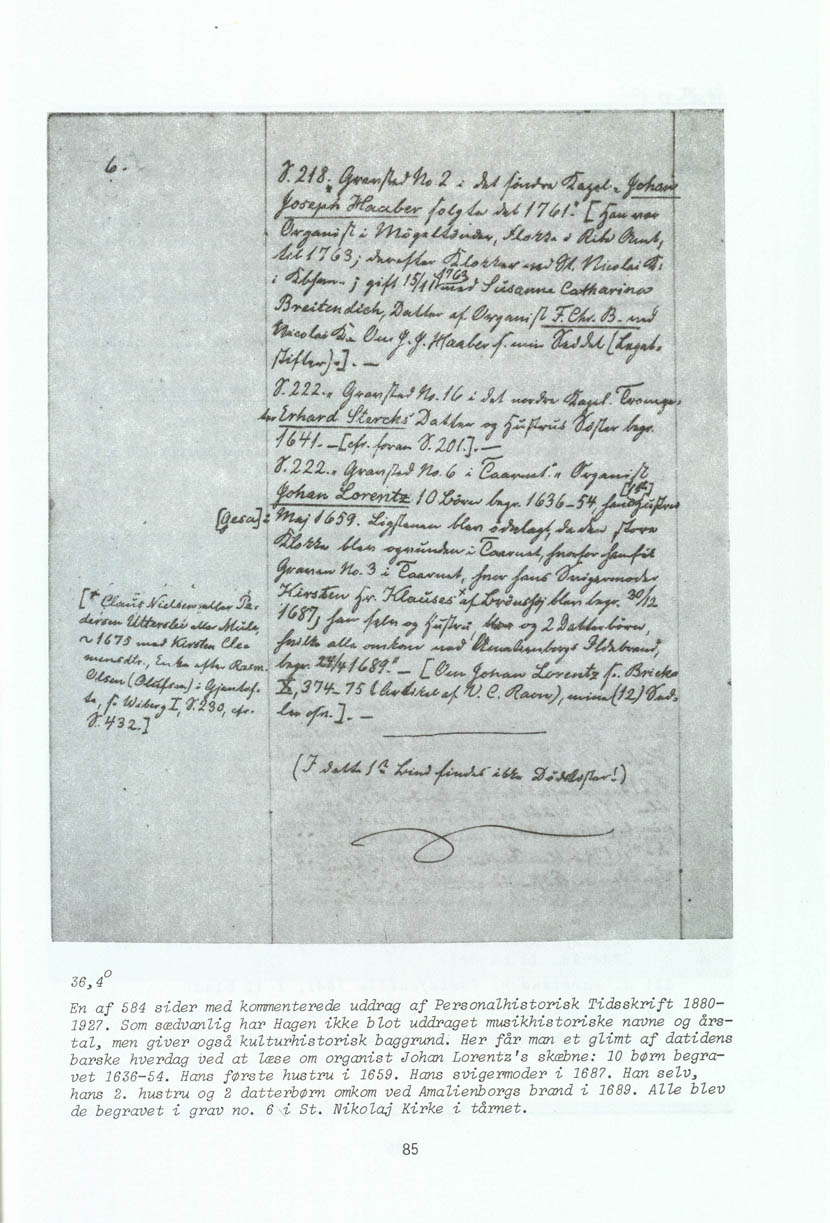 6.
S. 218. "Gravsted No. 2 i det søndre Kapel. Johan
Joseph Haaber solgte det 1761." [Han var
Organist i Mögeltönder, Klokker i Ribe Amt,
til 1763; derefter Klokker ved St. Nicolai K.
i Kbhvn.; gift 15/11 1763 med Susanne Catharina
Breitendich, Datter af Organist F. Chr. B. ved
Nicolai K. Om J. J. Haaber s. min Seddel (Legat-
stifter).]. —
S. 222. "Gravsted No. 16 i det nordre Kapel. Trompe-
ter Erhard Stercks Datter og Hustrus Søster begr.
1641. — [cfr. foran S. 201.]. —
S. 222. "Gravsted No. 6 i Taarnet." Organist
Johan Lorentz 10 Börn begr. 1636–54 hans [1ste] Hustru
[Gesa]: Maj 1659. Ligstenen blev ødelagt, da den store
Klokke blev ophunden i Taarnet, hvorfor han fik
Graven No. 3 i Taarnet, hvor hans Svigermoder
Kirsten Hr. Klauses* af Brönshöj blev begr. 30/12
1687; han selv og Hustru og 2 Datterbörn,
hvilke alle omkom ved Amalienborgs Ildebrand,
begr. 24/4 1689." — [Om Johan Lorentz s. Bricka
X, 374–75 (Artikel af V. C. Ravn), mine (12) Sed-
ler ofv.]. —
[* Claus Nielsen eller Pe-
dersen Utterslev eller Mule,
~ 1675 med Kirsten Cle-
mensdtr., Enke efter Rasm.
Olsen (Olufsen) i Gjentof-
te, s. Wiberg I, S. 230, cfr.
S. 432.]
(I dette 1ste Bind findes ikke Dødslister!)
36,4°
En af 584 sider med kommenterede uddrag af Personalhistorisk Tidsskrift 1880-
1927. Som sædvanlig har Hagen ikke blot uddraget musikhistoriske navne og års-
tal, men giver også kulturhistorisk baggrund. Her får man et glimt af datidens
barske hverdag ved at læse om organist Johan Lorentz's skæbne: 10 børn begra-
vet 1636-54. Hans første hustru i 1659. Hans svigermoder i 1687. Han selv,
hans 2. hustru og 2 datterbørn omkom ved Amalienborgs brand i 1689. Alle blev
de begravet i grav no. 6 i St. Nikolaj Kirke i tårnet.
85